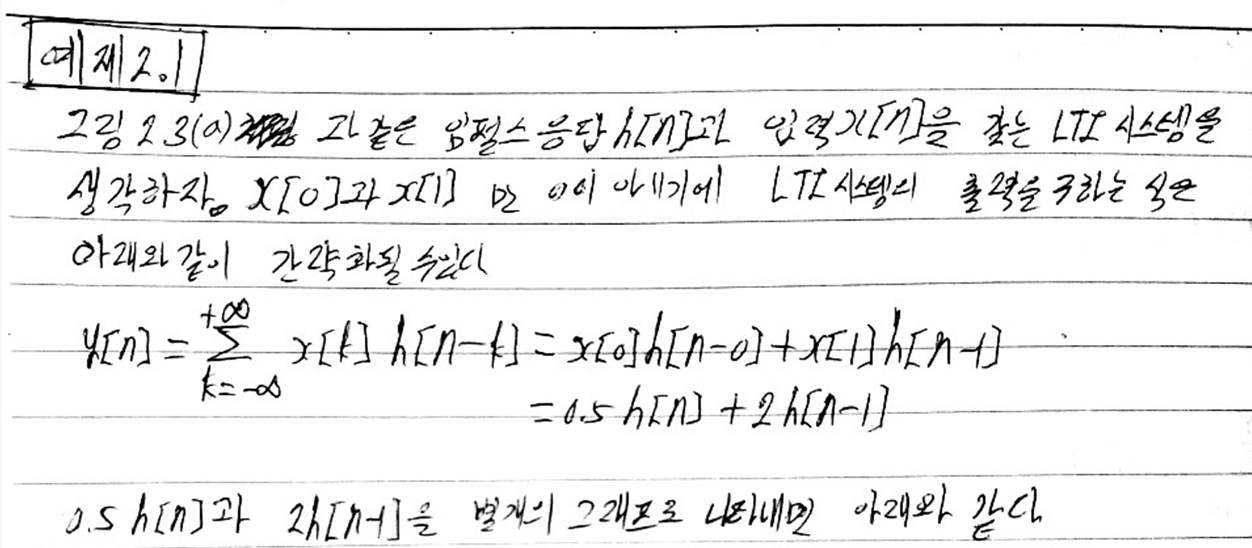 예제 2.1
그림 2.3(a)과 같은 임펄스 응답 h[n]과 입력 x[n]을 갖는 LTI 시스템을
생각하자. x[0]과 x[1] 만 0이 아니기에 LTI 시스템의 출력을 구하는 식은
아래와 같이 간략화될 수있다
y[n] = \sum_{k=-∞}^{+∞} x[k] h[n-k] = x[0]h[n-0] + x[1]h[n-1]
= 0.5 h[n] + 2h[n-1]
0.5 h[n]과 2h[n-1]을 별개의 그래프로 나타내면 아래와 같다